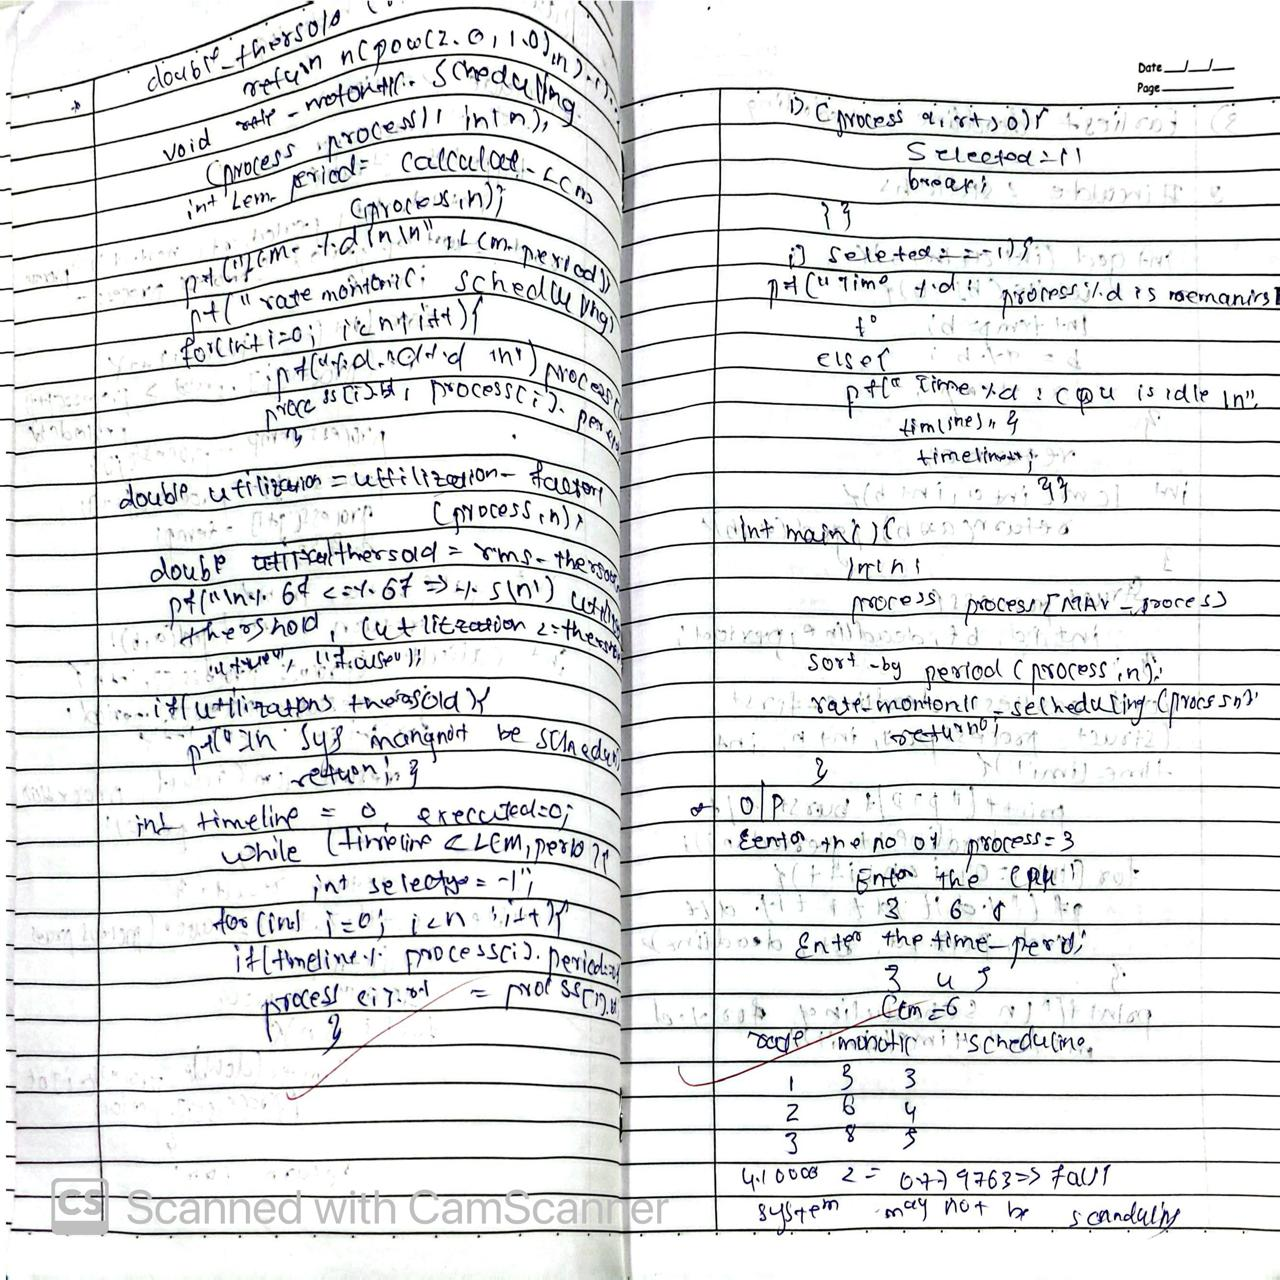 double_thersold (
return n(pow(2.0, 1.0)/n)-1);
void rate-motontic. Scheduling
(process process[], int n);
int Lem_period= calculate-LCM
(process, n);
ptf("LCM= %d \n\n", LCM.period);
pt("rate montonic: scheduling)
for(int i=0; i<n; i++){
ptf("%d %d %d \n") process
process[i].bt, process[i]. period
}
double utilization = utilization- factor
(process, n);
double thersold = rms-thersold
pf("\n%. 6f <= %. 6f => %. s\n") utiliz
thershold, (utlitzation <=thers
"true", "false");
if(utilizations thersold){
pt("\n sys mangnot be Schedul
return; }
int timeline = 0, executed=0;
while (timeline < LEM, perio){
int selectge = -1";
for (int i=0; i<n ; i++){
if(tmeline % process(i). period=
process (i).rt = process(i).b
}
Date __/__/__
Page
if (process [i].rt > 0){
Selected = i
break;
} }
if selected = = -1){
ptf("Time %d : process %d is remanins
}
else{
ptf(" Time %d : cpu is idle \n",
timline); }
timeline++;
}}
Int main() {
int n;
process process [MAX_process]
sort -by period (process, n);
rate_montonic _ secheduling (process n);
return 0;
}
O/P
Eenter the no of process=3
Enter the CPU
3 6 8
Enter the time_period;
3 4 5
LCM=6
rate monotic scheduling.
1 3 3
2 6 4
3 8 5
4.10000 2= 0.779763=> Fals
system may not be scandully
CS Scanned with CamScanner